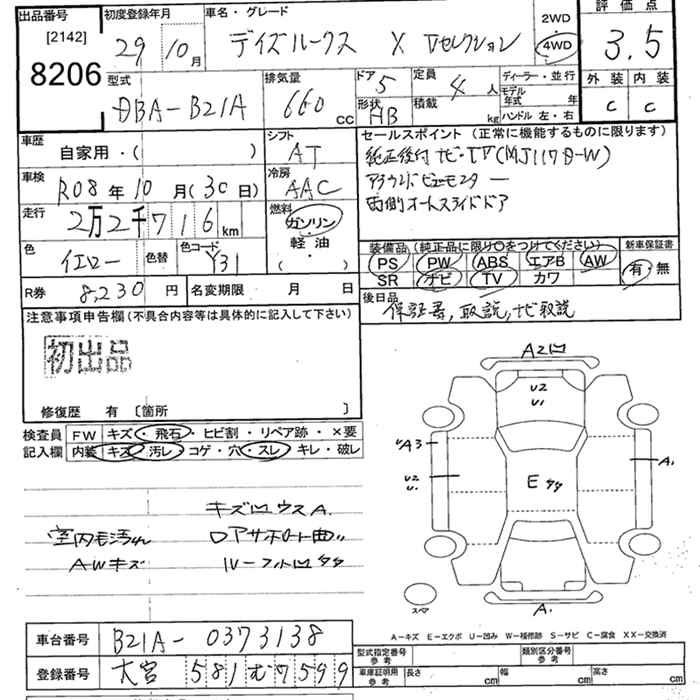 出品番号
[2142]
8206
初度登録年月
29年10月
車名・グレード
デイズルークス X Vセレクション
2WD
4WD
評価点
3.5
外装 内装
C C
型式
DBA-B21A
排気量
660 cc
ドア 5
定員 4人
形状 HB
積載 kg
ディーラー・並行
モデル年式 年
ハンドル 左・右
車歴
自家用・( )
シフト
AT
セールスポイント (正常に機能するものに限ります)
純正後付ナビ・TV(MJ117D-W)
アラウンドビューモニター
両側オートスライドドア
車検
R08年10月(30日)
冷房
AAC
走行
2万2千716km
燃料
ガソリン
軽油
( ・ )
色
イエロー
色替
色コード
Y31
装備品 (純正品に限り○をつけてください)
PS PW ABS エアB AW
SR ナビ TV カワ
新車保証書
有・無
R券 8,230円
名変期限 月 日
後日品
保証書,取説,ナビ取説
注意事項申告欄 (不具合内容等は具体的に記入して下さい)
初出品
修復歴 有 〔箇所 〕
検査員記入欄
FW キズ・飛石・ヒビ割・リペア跡・×要
内装 キズ・汚レ・コゲ・穴・スレ・キレ・破レ
キズ凹ウスA.
室内毛汚れ ロアサポート曲
AWキズ ルーフ凹タタ
A2凹
U2
U1
UA3
U2
U.
A1
E タタ
A.
スペア
A-キズ E-エクボ U-凹み W-補修跡 S-サビ C-腐食 XX-交換済
車台番号 B21A-0373138
登録番号 大宮 581 む 7599
型式指定番号 参考
類別区分番号 参考
車庫証明用 参考 長さ cm 幅 cm 高さ cm